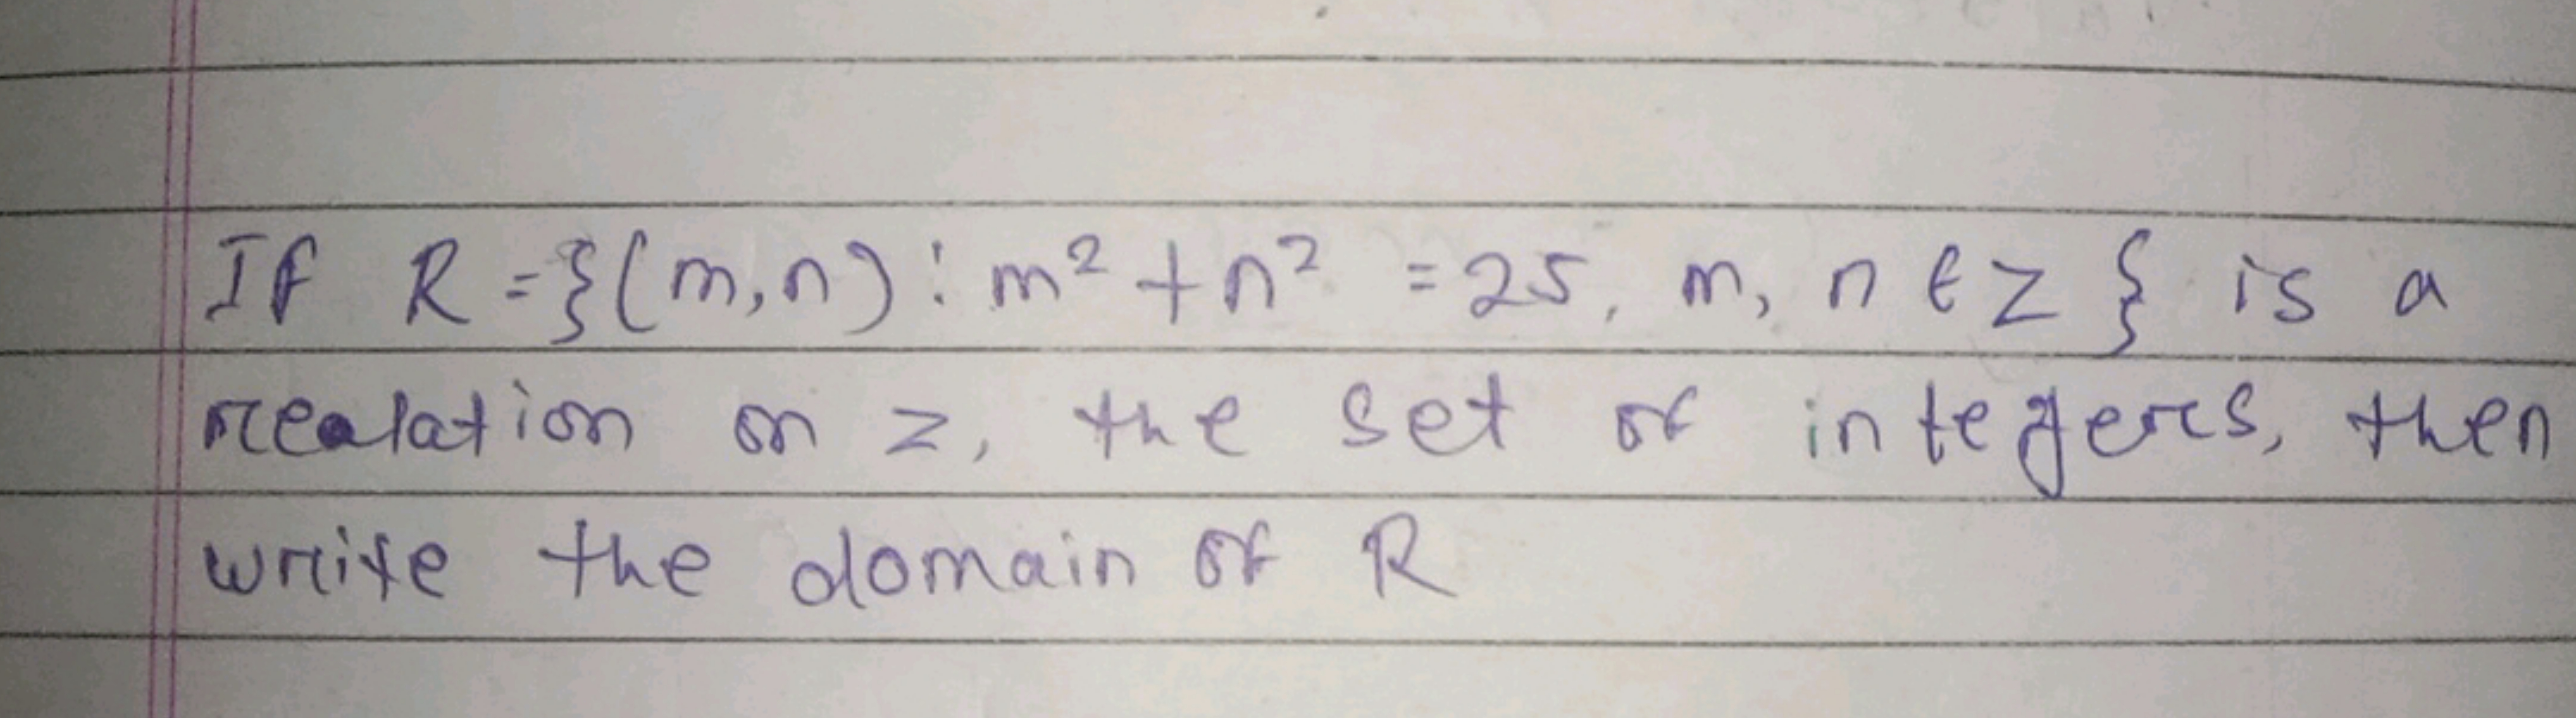 If R = {(m,n) : m² + n² = 25, m, n ∈ Z } is a
realation on z, the set of integers, then
write the domain of R